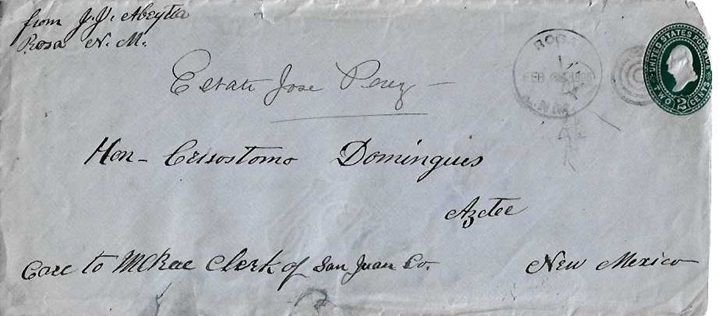 from J. J. Abeytia
Rosa N. M.
UNITED STATES POSTAGE
TWO 2 CENTS
ROSA
FEB
N. M.
Estate Jose Perez
Hon- Crisostomo Domingues
Aztec
Care to McRae Clerk of San Juan Co.
New Mexico